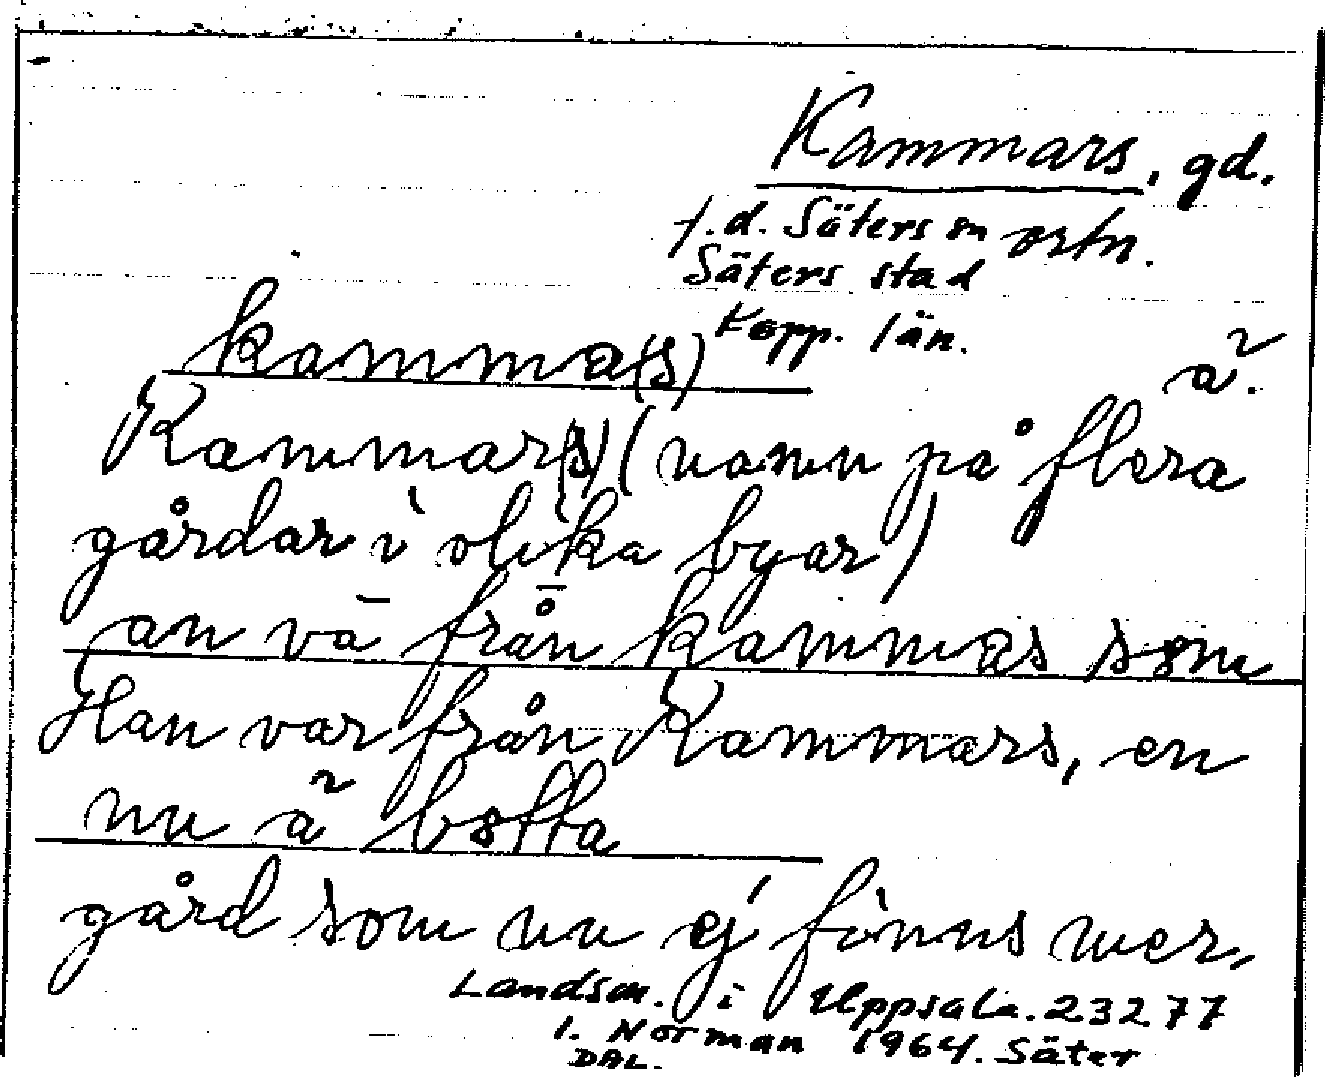 Kammars, gd.
f.d. Säters sn ortn.
Säters stad
Kopp. län.
kamma(s) ã.
Kammar(s) (namn på flera
gårdar i olika byar)
an vā från̄ kammas som
Han var från Kammars, en
nu ã botta
gård som nu ej finns mer.
Landsm. i Uppsala. 23277
I. Norman 1964. Säter
DAL.